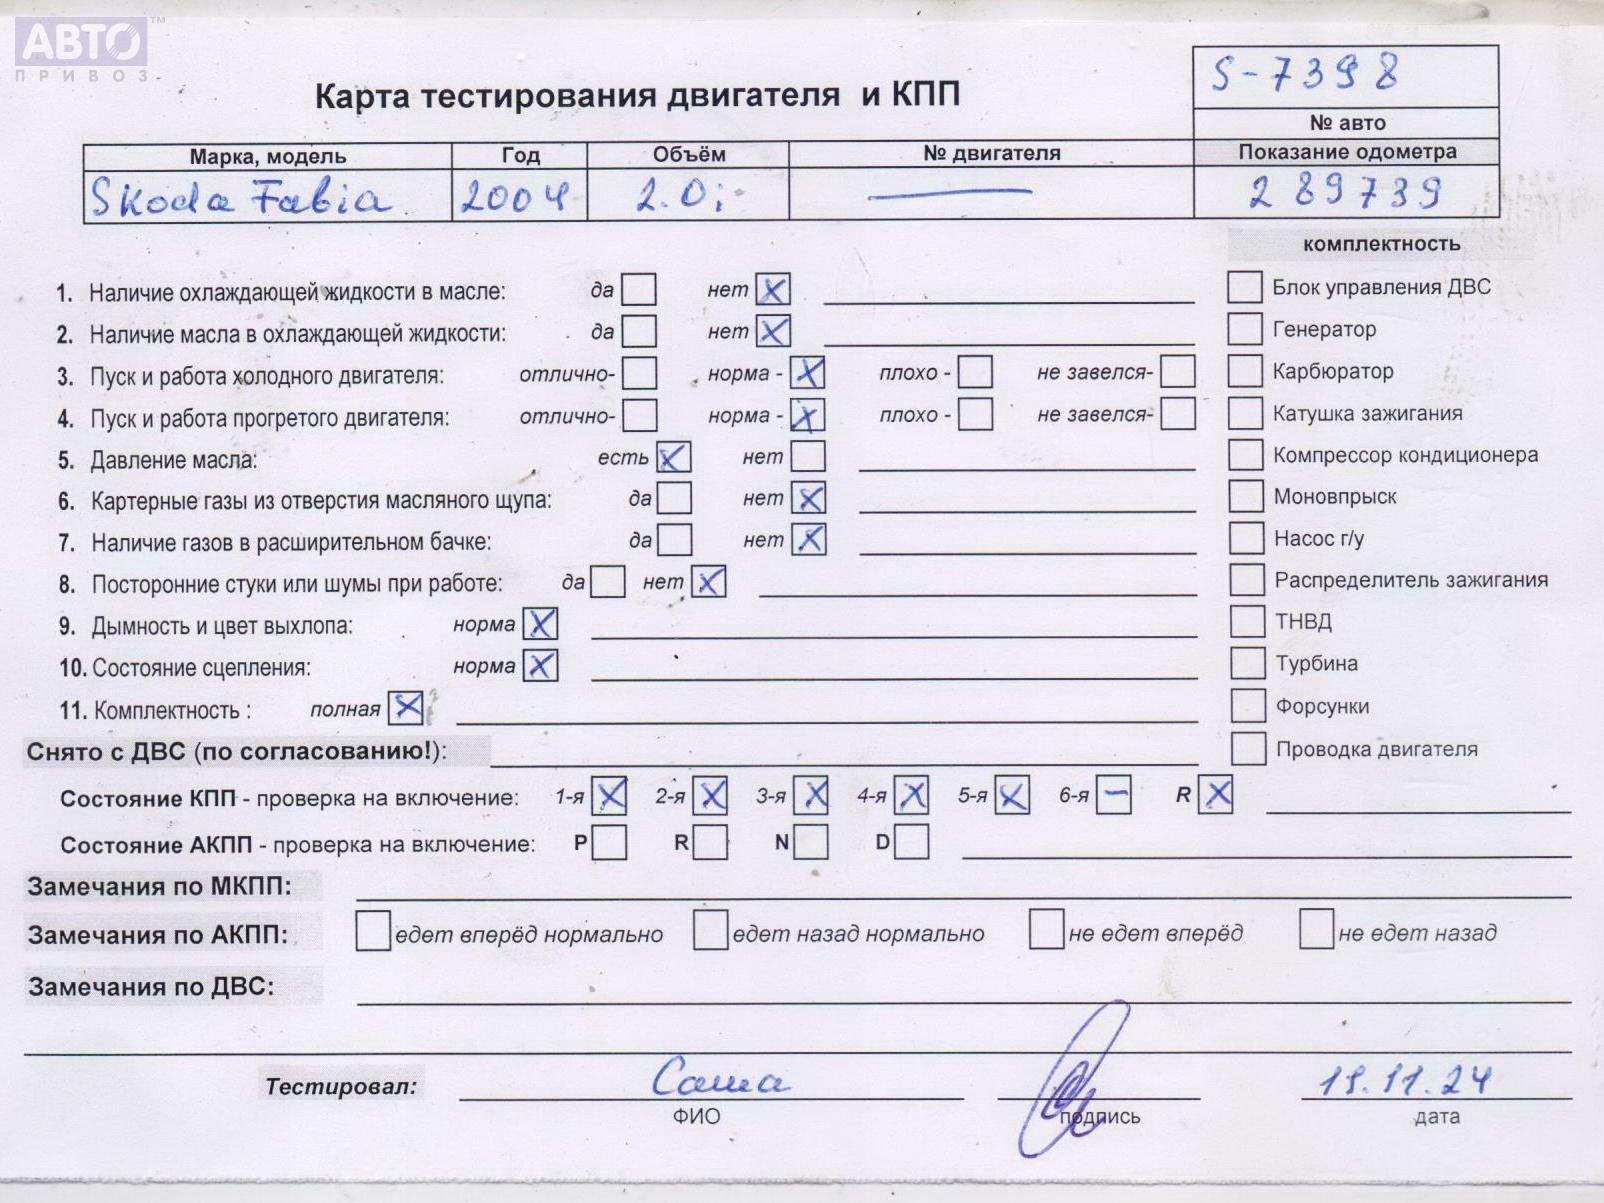 АВТО™
ПРИВОЗ
S-7398
Карта тестирования двигателя и КПП
№ авто
Марка, модель Год Объём № двигателя Показание одометра
Skoda Fabia 2004 2.0i — 289739
комплектность
1. Наличие охлаждающей жидкости в масле: да нет X
Блок управления ДВС
2. Наличие масла в охлаждающей жидкости: да нет X
Генератор
3. Пуск и работа холодного двигателя: отлично- норма - X плохо - не завелся-
Карбюратор
4. Пуск и работа прогретого двигателя: отлично- норма - X плохо - не завелся-
Катушка зажигания
5. Давление масла: есть X нет
Компрессор кондиционера
6. Картерные газы из отверстия масляного щупа: да нет X
Моновпрыск
7. Наличие газов в расширительном бачке: да нет X
Насос г/у
8. Посторонние стуки или шумы при работе: да нет X
Распределитель зажигания
9. Дымность и цвет выхлопа: норма X
ТНВД
10. Состояние сцепления: норма X
Турбина
11. Комплектность : полная X
Форсунки
Снято с ДВС (по согласованию!):
Проводка двигателя
Состояние КПП - проверка на включение: 1-я X 2-я X 3-я X 4-я X 5-я X 6-я — R X
Состояние АКПП - проверка на включение: P R N D
Замечания по МКПП:
Замечания по АКПП: едет вперёд нормально едет назад нормально не едет вперёд не едет назад
Замечания по ДВС:
Тестировал: Саша 11.24
ФИО подпись дата